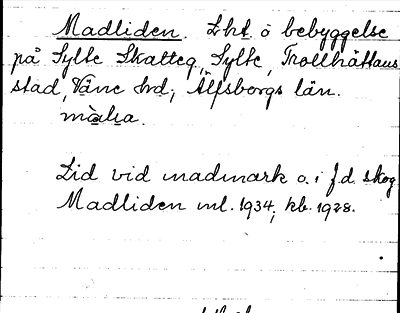 Madliden. Lht. o bebyggelse
på Sylte Skatteg, Sylte, Trollhättans
stad, Väne hd; Älfsborgs län.
Lid vid madmark o. i f.d. skog
Madliden ml. 1934, kb. 1928.